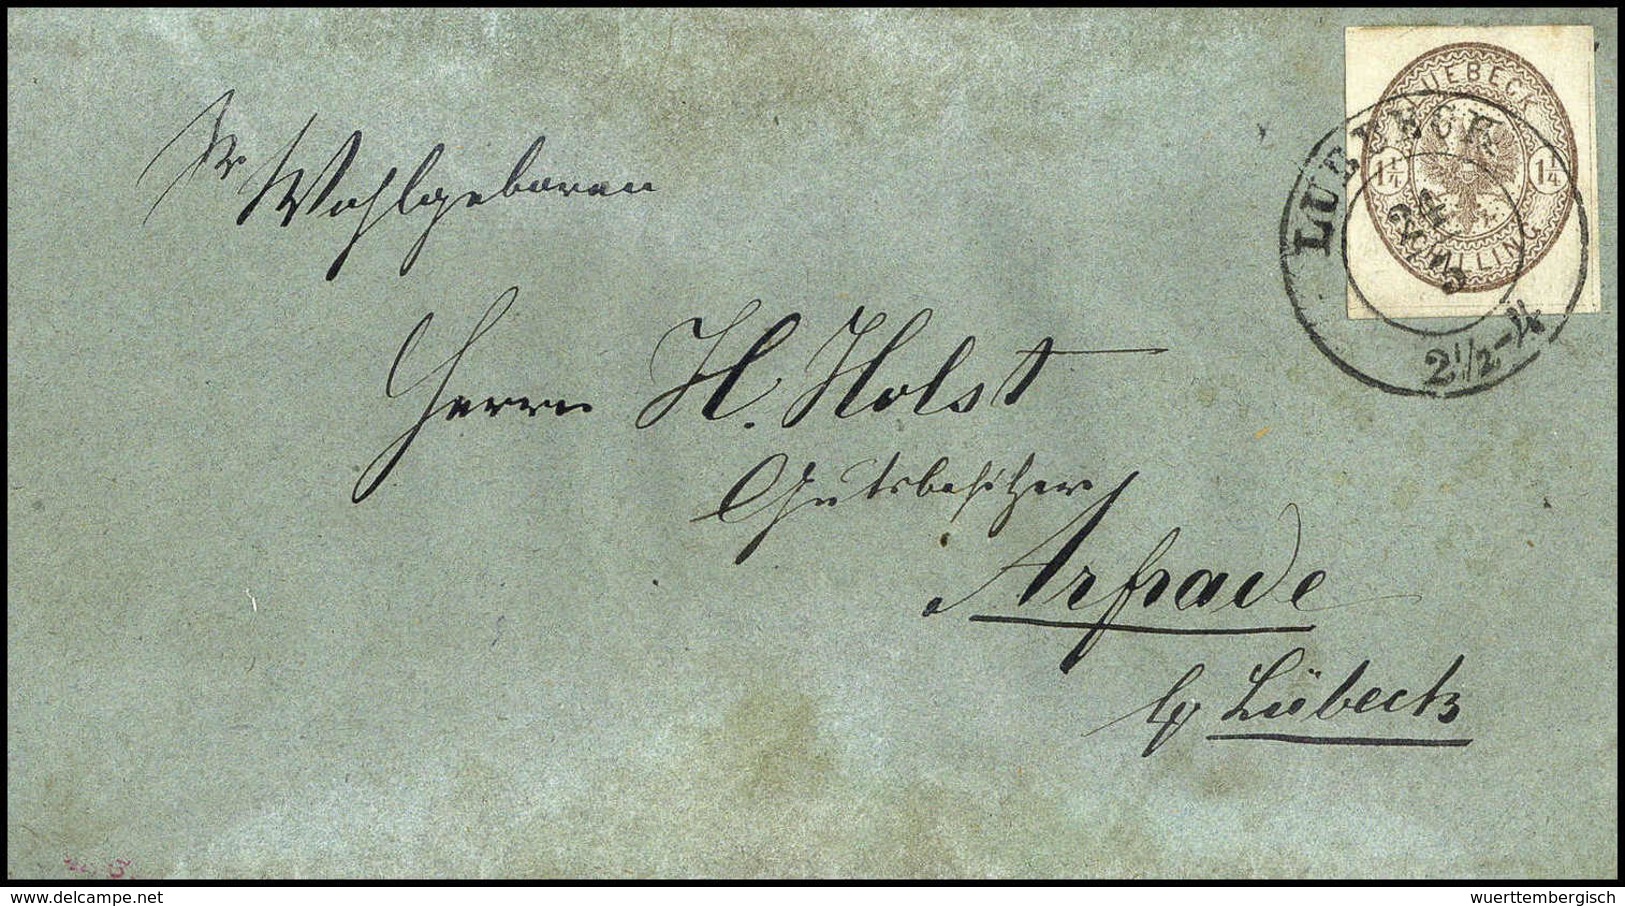 Sr Wohlgeboren
Herrn H. Holst
Gutsbesitzer
Arfrade
b/ Lübeck
LUEBECK
1 1/4
1 1/4
SCHILLING
LUEBECK
24
5
2 1/2-4
Hosted on delcampe.net
wuerttembergisch